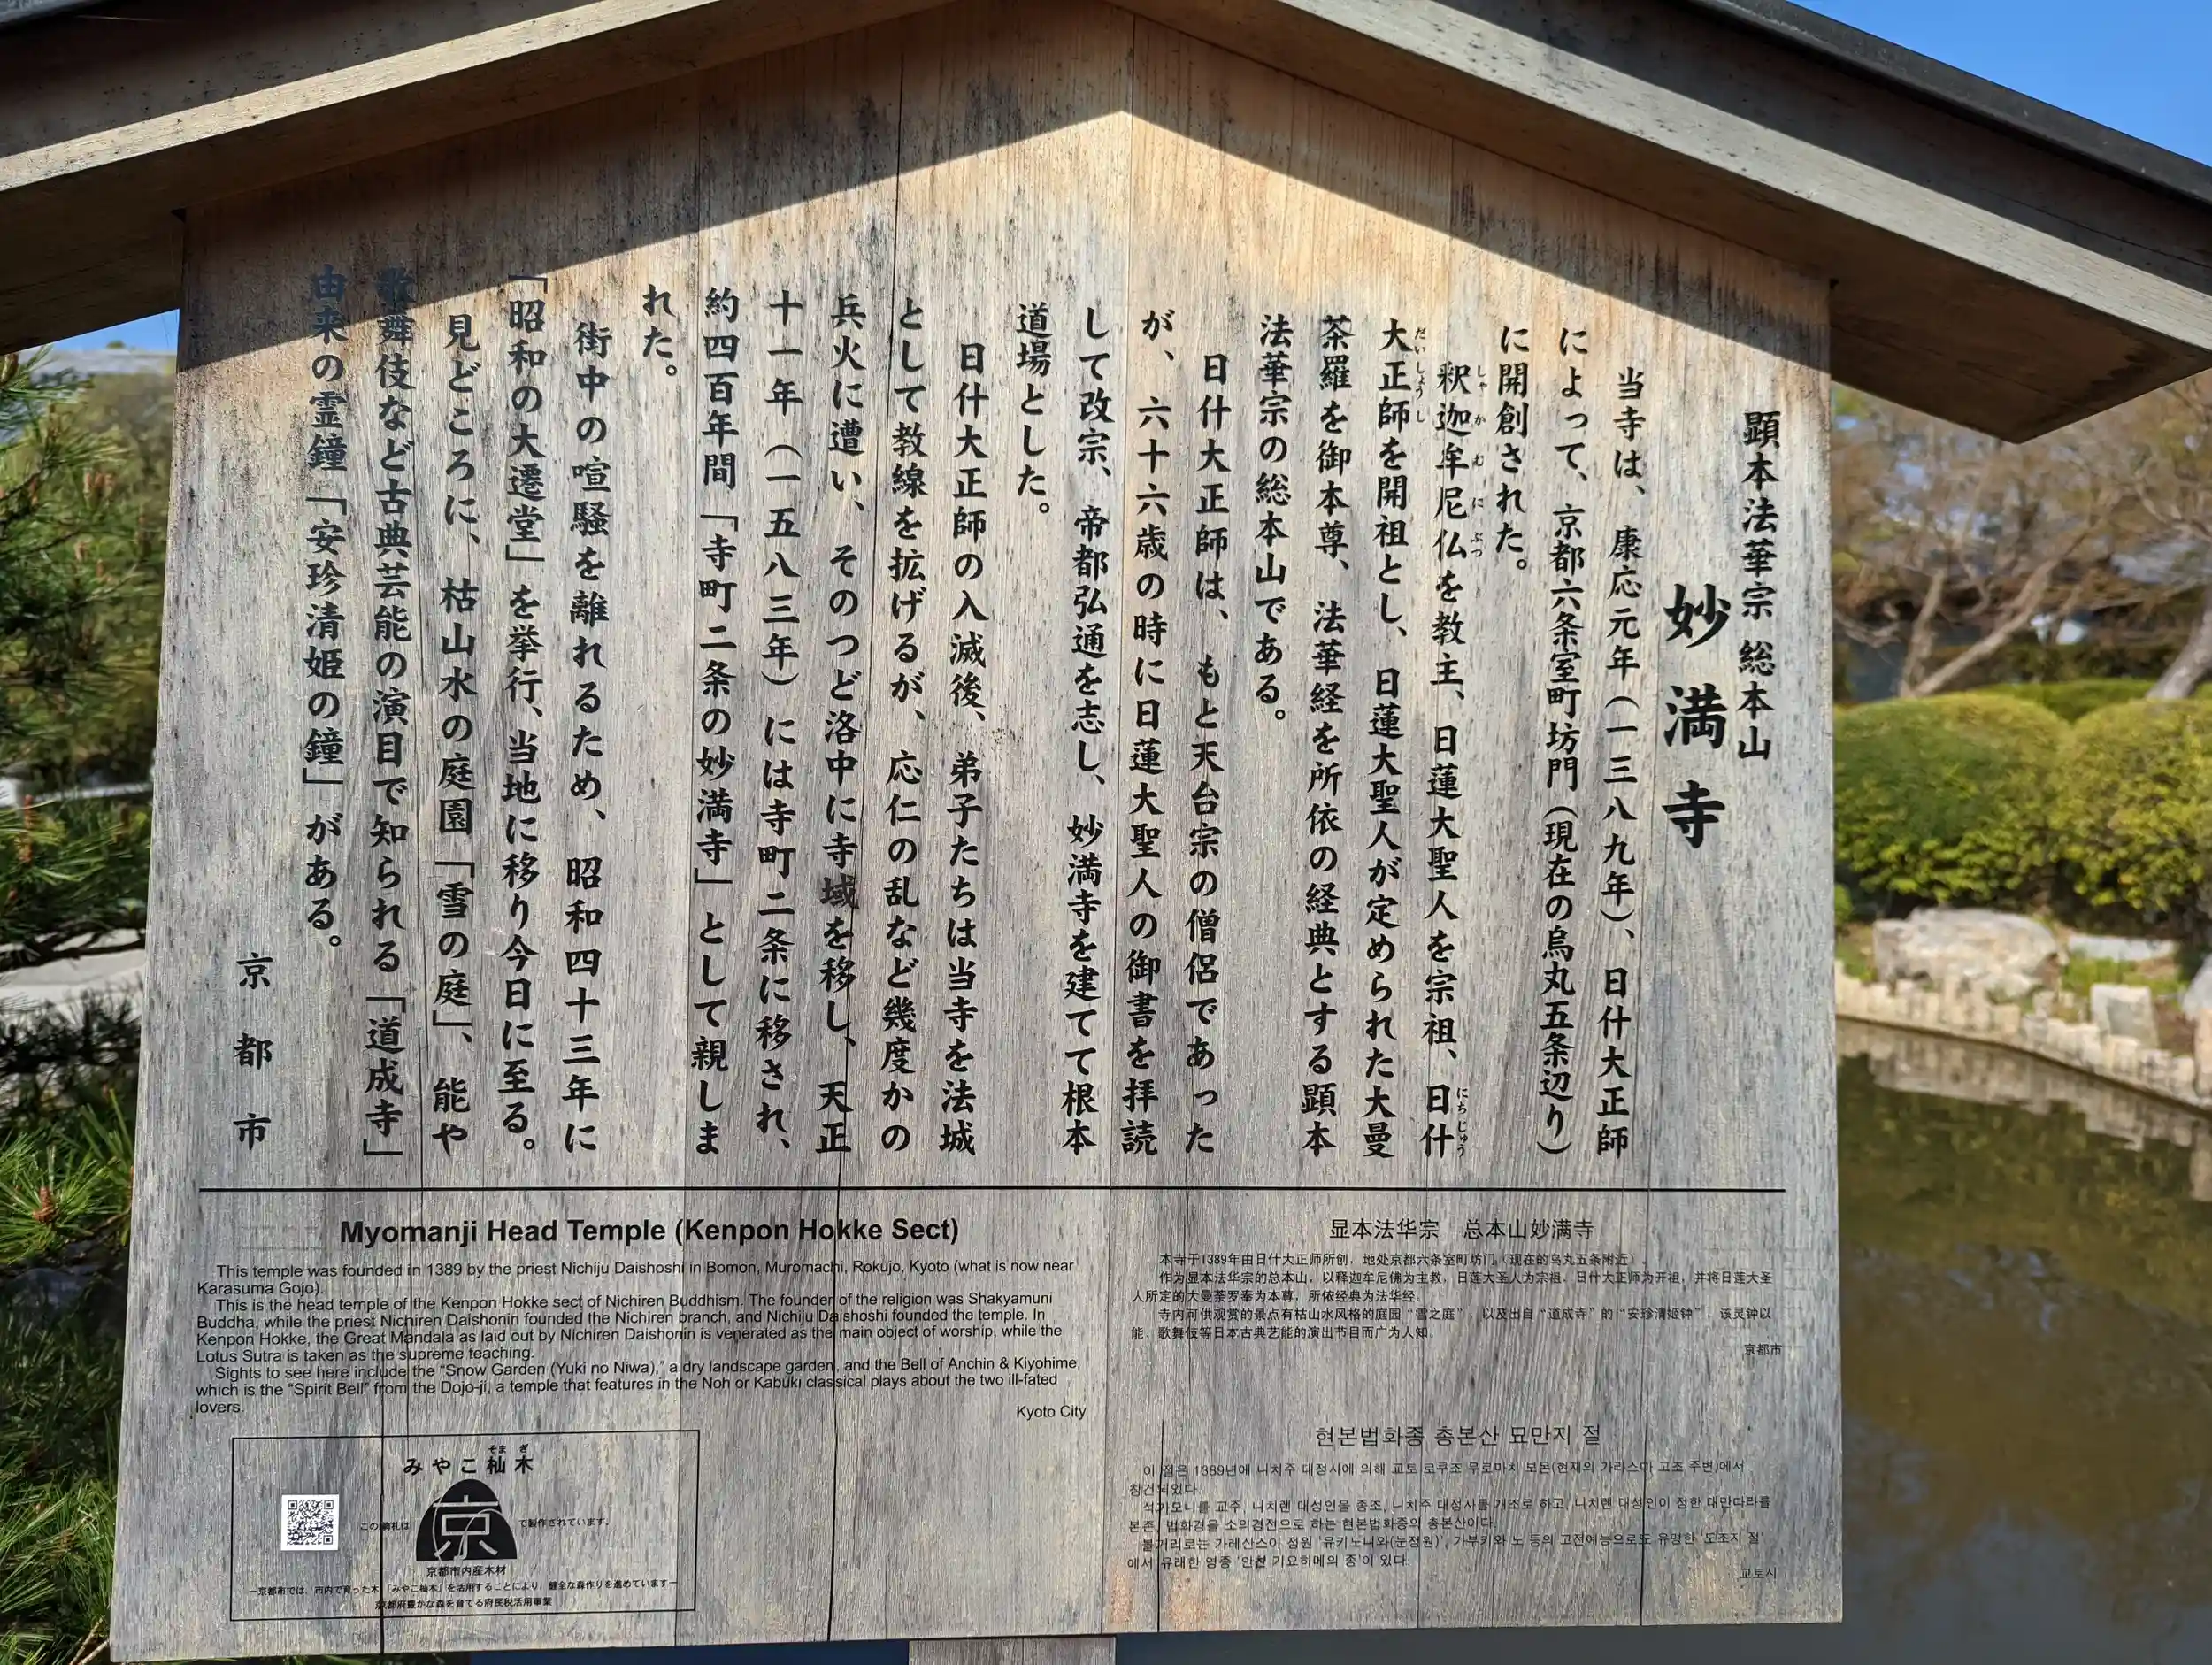 顕本法華宗 総本山
妙満寺
当寺は、康応元年（一三八九年）、日什大正師
によって、京都六条室町坊門（現在の烏丸五条辺り）
に開創された。
釈迦牟尼仏を教主、日蓮大聖人を宗祖、日什
しゃかむにぶつ
にちじゅう
大正師を開祖とし、日蓮大聖人が定められた大曼
だいしょうし
荼羅を御本尊、法華経を所依の経典とする顕本
法華宗の総本山である。
日什大正師は、もと天台宗の僧侶であった
が、六十六歳の時に日蓮大聖人の御書を拝読
して改宗、帝都弘通を志し、妙満寺を建てて根本
道場とした。
日什大正師の入滅後、弟子たちは当寺を法城
として教線を拡げるが、応仁の乱など幾度かの
兵火に遭い、そのつど洛中に寺域を移し、天正
十一年（一五八三年）には寺町二条に移され、
約四百年間「寺町二条の妙満寺」として親しま
れた。
街中の喧騒を離れるため、昭和四十三年に
「昭和の大遷堂」を挙行、当地に移り今日に至る。
見どころに、枯山水の庭園「雪の庭」、能や
歌舞伎など古典芸能の演目で知られる「道成寺」
由来の霊鐘「安珍清姫の鐘」がある。
京都市
Myomanji Head Temple (Kenpon Hokke Sect)
This temple was founded in 1389 by the priest Nichiju Daishoshi in Bomon, Muromachi, Rokujo, Kyoto (what is now near
Karasuma Gojo).
This is the head temple of the Kenpon Hokke sect of Nichiren Buddhism. The founder of the religion was Shakyamuni
Buddha, while the priest Nichiren Daishonin founded the Nichiren branch, and Nichiju Daishoshi founded the temple. In
Kenpon Hokke, the Great Mandala as laid out by Nichiren Daishonin is venerated as the main object of worship, while the
Lotus Sutra is taken as the supreme teaching.
Sights to see here include the “Snow Garden (Yuki no Niwa),” a dry landscape garden, and the Bell of Anchin & Kiyohime,
which is the “Spirit Bell” from the Dojo-ji, a temple that features in the Noh or Kabuki classical plays about the two ill-fated
lovers.
Kyoto City
显本法华宗 总本山妙满寺
本寺于1389年由日什大正师所创，地处京都六条室町坊门（现在的乌丸五条附近）。
作为显本法华宗的总本山，以释迦牟尼佛为主教，日莲大圣人为宗祖，日什大正师为开祖，并将日莲大圣
人所定的大曼荼罗奉为本尊，所依经典为法华经。
寺内可供观赏的景点有枯山水风格的庭园“雪之庭”，以及出自“道成寺”的“安珍清姬钟”，该灵钟以
能、歌舞伎等日本古典艺能的演出节目而广为人知。
京都市
현본법화종 총본산 묘만지 절
이 절은 1389년에 니치주 대정사에 의해 교토 로쿠조 무로마치 보몬(현재의 가라스마 고조 주변)에서
창건되었다.
석가모니를 교주, 니치렌 대성인을 종조, 니치주 대정사를 개조로 하고, 니치렌 대성인이 정한 대만다라를
본존, 법화경을 소의경전으로 하는 현본법화종의 총본산이다.
볼거리로는 가레산스이 정원 '유키노니와(눈정원)', 가부키와 노 등의 고전예능으로도 유명한 '도조지 절'
에서 유래한 영종 '안친 기요히메의 종'이 있다.
교토시
そま ぎ
みやこ杣木
この駒札は
京
で製作されています。
京都市内産木材
－京都市では、市内で育った木「みやこ杣木」を活用することにより、健全な森作りを進めています－
京都府豊かな森を育てる府民税活用事業